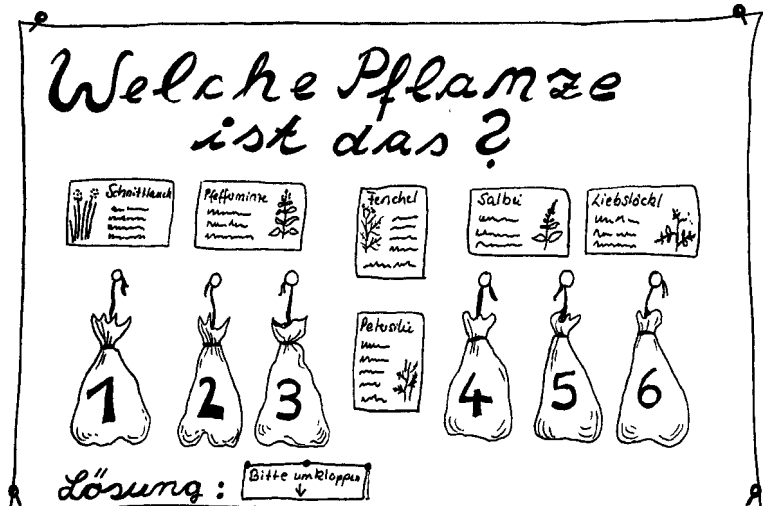 Welche Pflanze
ist das?
Schnittlauch
Pfefferminze
Fenchel
Salbei
Liebstöckl
Petersilie
1 2 3 4 5 6
Lösung:
Bitte umklappen